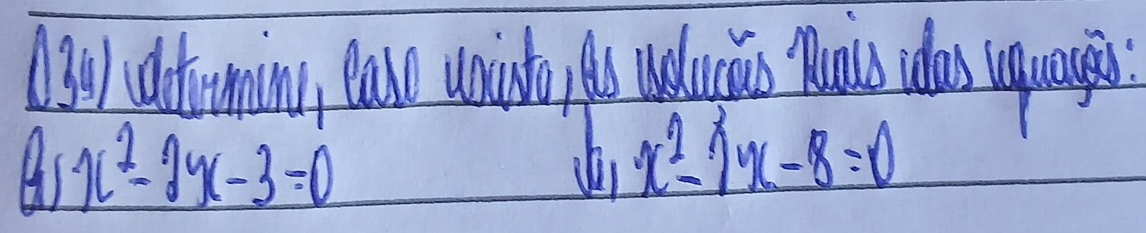 034) determine, caso exista, as soluções Reais das equações:
a) x² - 2x - 3 = 0 b) x² - 7x - 8 = 0